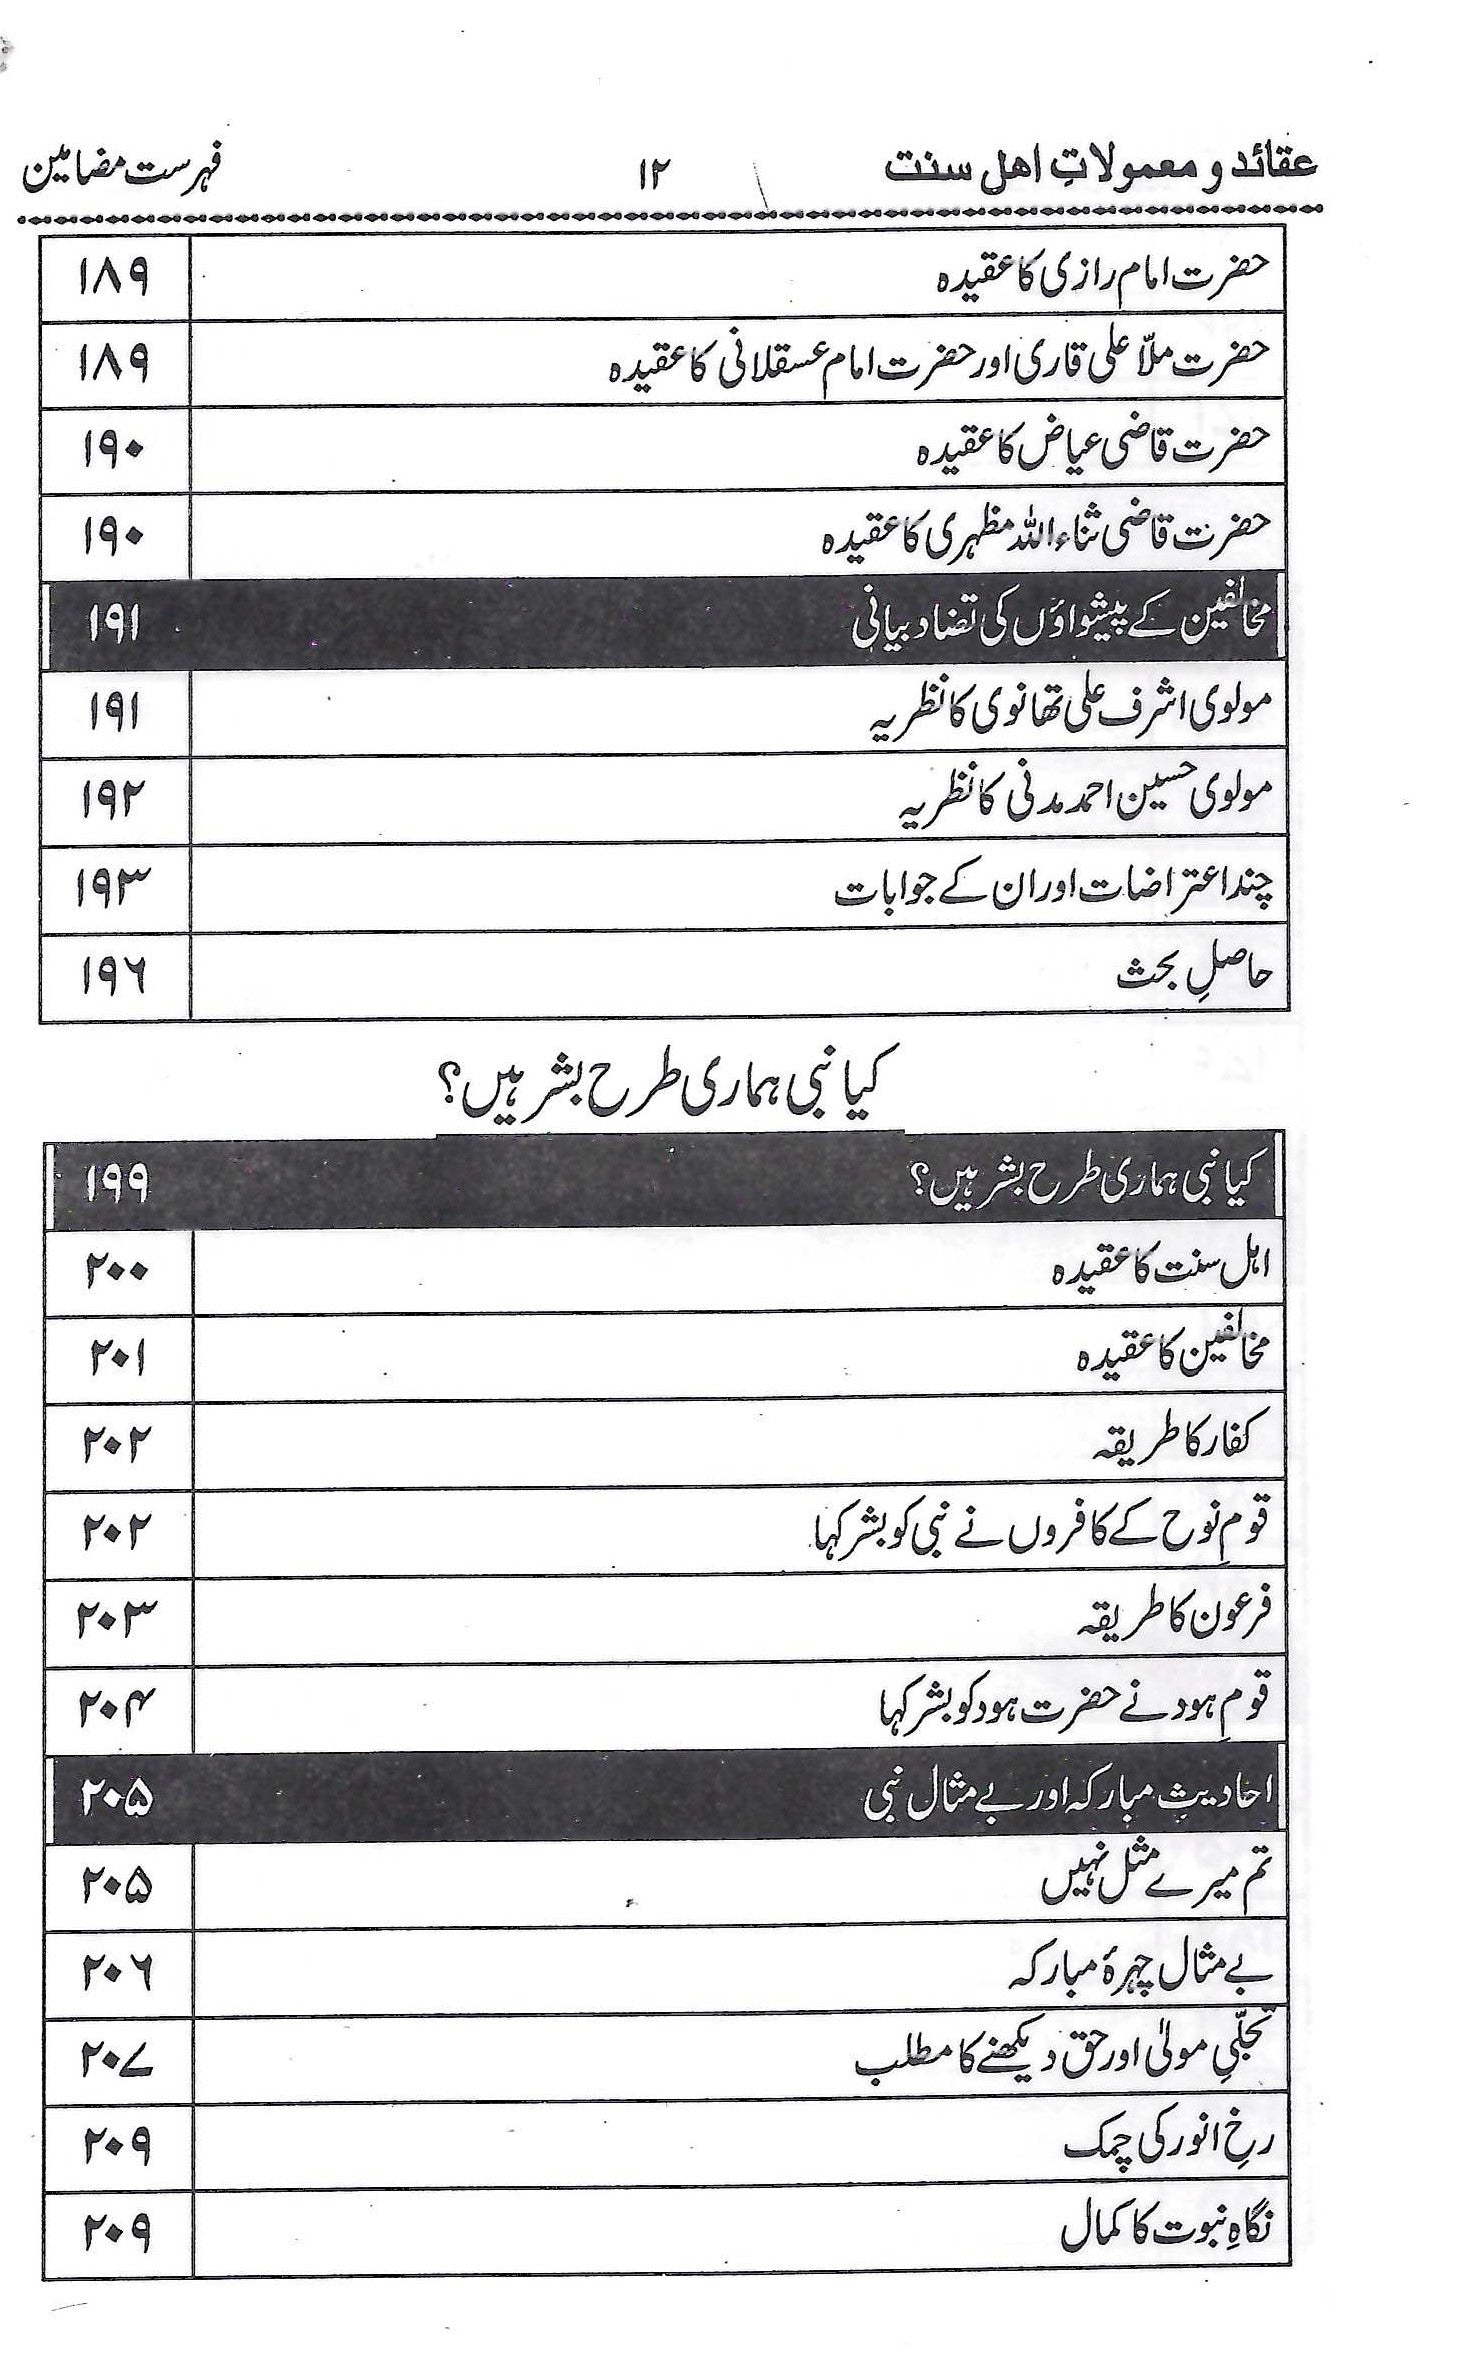 عقائد و معمولاتِ اهل سنت ۱۲ فہرست مضامین
حضرت امام رازی کا عقیدہ ۱۸۹
حضرت ملّا علی قاری اور حضرت امام عسقلانی کا عقیدہ ۱۸۹
حضرت قاضی عیاض کا عقیدہ ۱۹۰
حضرت قاضی ثناء اللہ مظہری کا عقیدہ ۱۹۰
مخالفین کے پیشواؤں کی تضاد بیانی ۱۹۱
مولوی اشرف علی تھانوی کا نظریہ ۱۹۱
مولوی حسین احمد مدنی کا نظریہ ۱۹۲
چند اعتراضات اور ان کے جوابات ۱۹۳
حاصلِ بحث ۱۹۶
کیا نبی ہماری طرح بشر ہیں؟
کیا نبی ہماری طرح بشر ہیں؟ ۱۹۹
اہل سنت کا عقیدہ ۲۰۰
مخالفین کا عقیدہ ۲۰۱
کفار کا طریقہ ۲۰۲
قومِ نوح کے کافروں نے نبی کو بشر کہا ۲۰۲
فرعون کا طریقہ ۲۰۳
قومِ ہود نے حضرت ہود کو بشر کہا ۲۰۴
احادیثِ مبارکہ اور بے مثال نبی ۲۰۵
تم میرے مثل نہیں ۲۰۵
بے مثال چہرۂ مبارکہ ۲۰۶
تجلّیِ مولیٰ اور حق دیکھنے کا مطلب ۲۰۷
رخِ انور کی چمک ۲۰۹
نگاہِ نبوت کا کمال ۲۰۹